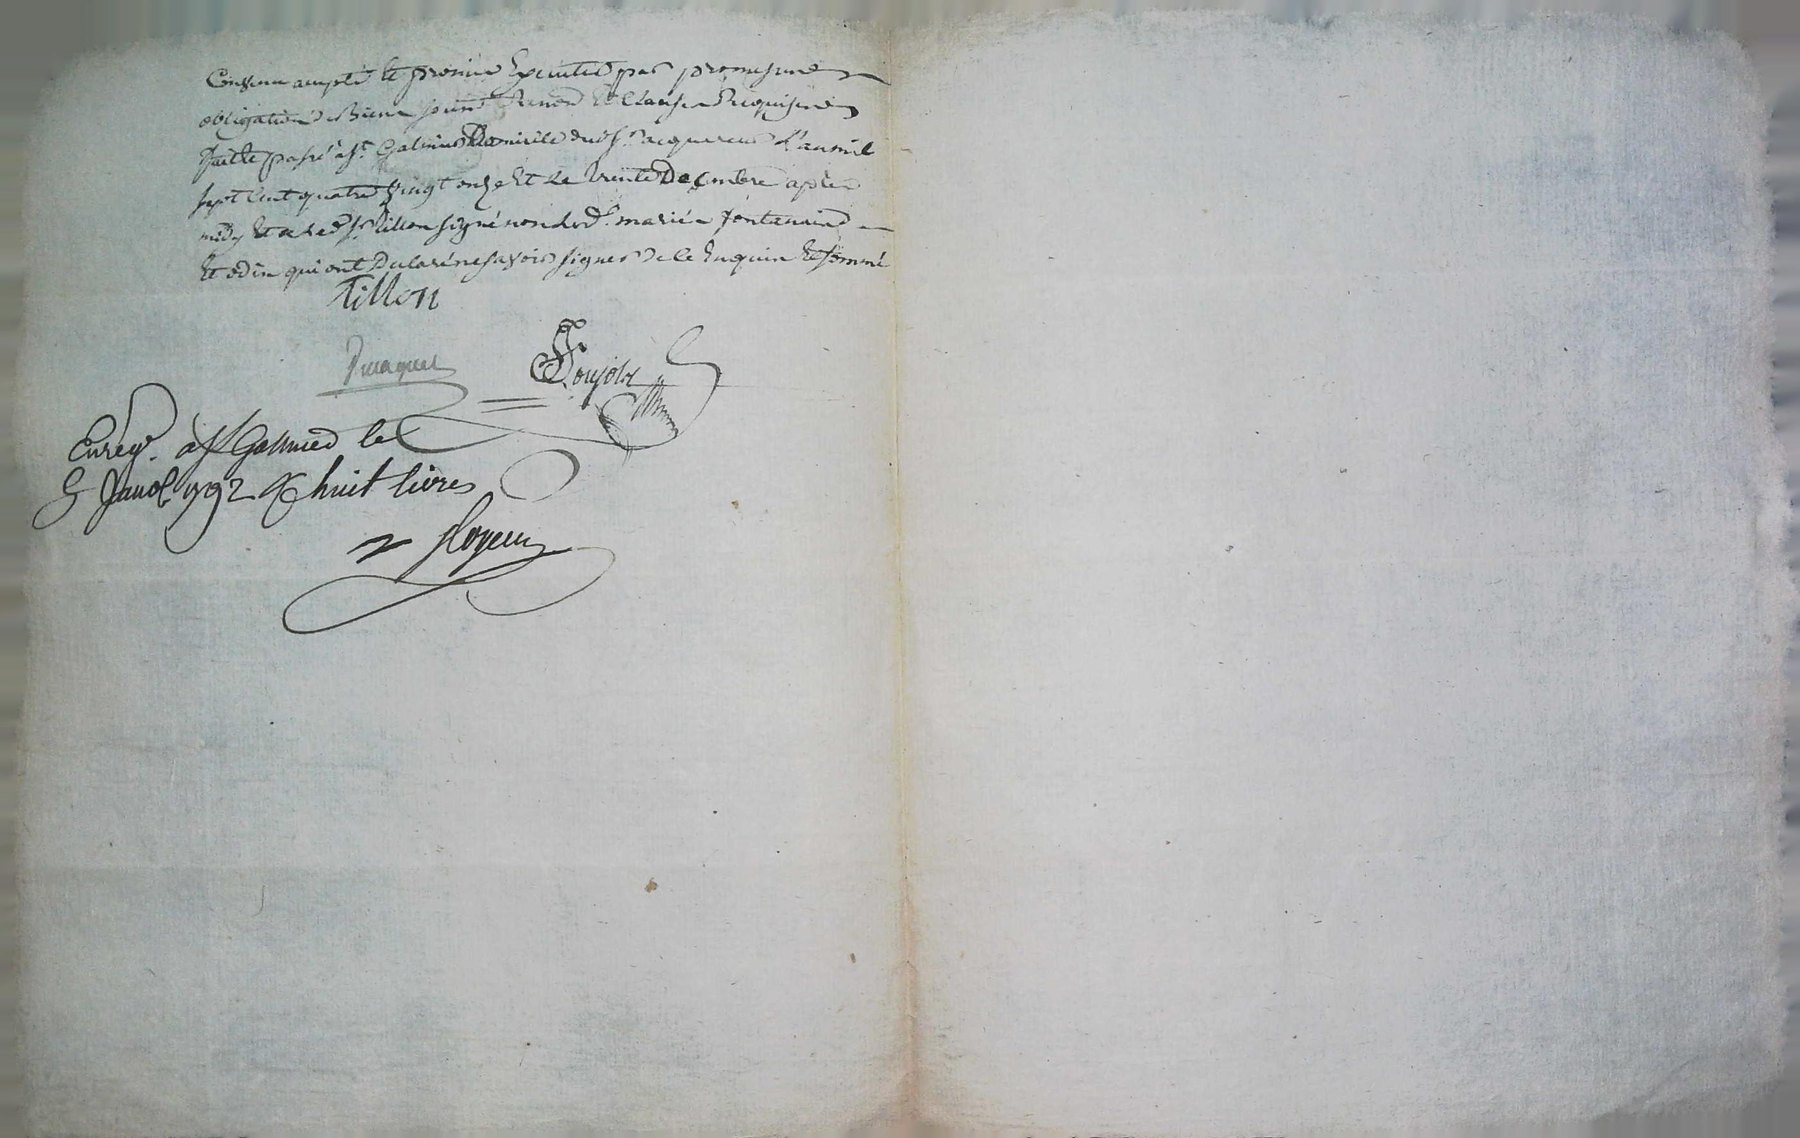 Convenu accepté et promis Executer par promesse
obligation de Biens soumission Renon et Clause Requises
faitte passé à St. Galmier Domicile dud. Sr. acquereur L'an mil
sept Cent quatre vingt onze Et le trente Decembre après
midy Et a led. Sr. Tillon signé non lesd. mariés fontanaix
Et odin qui ont Declaré ne savoir signer de ce Enquis Et sommé
Tillon
Enregr. à St Galmier le
5 Janv. 1792 R huit livres